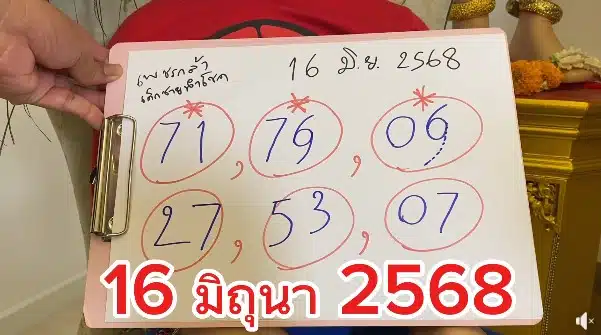 เพชรกล้า
16 มิ.ย. 2568
เด็กชายนำโชค
71, 76, 06
27, 53, 07
16 มิถุนา 2568